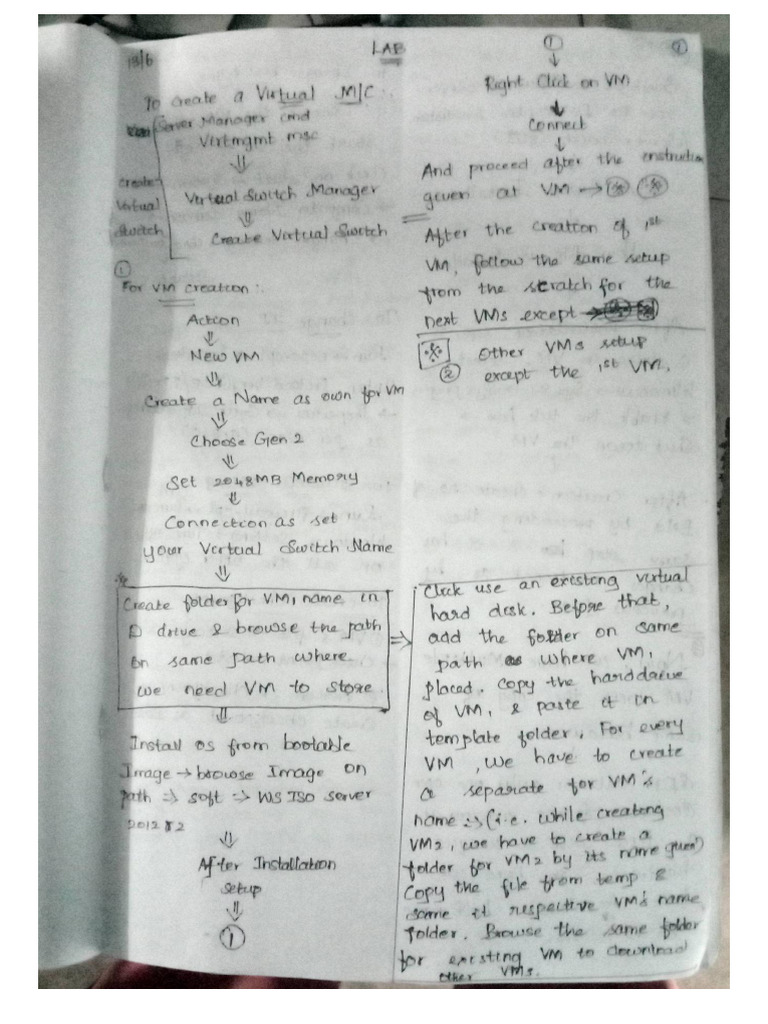 13/6
LAB
To create a Virtual M/C :.
Server Manager cmd
Virtmgmt msc
⇓
create
Virtual
Switch
Virtual Switch Manager
⇓
Create Virtual Switch
①
For VM creation :.
Action
⇓
New VM
⇓
Create a Name as own for VM
⇓
Choose Gen 2
⇓
Set 2048MB Memory
⇓
Connection as set
your Virtual Switch Name
⇓
Create folder for VM1 name in
D drive & browse the path
on same path where
we need VM to store.
⇓
Install os from bootable
Image → browse Image on
path ⇒ soft ⇒ WS ISO server
2012 R2
⇓
After Installation
setup
⇓
①
②
①
↓
Right Click on VM
↓
Connect
↓
And proceed after the instruction
given at VM → ※ ※
After the creation of 1st
VM, follow the same setup
from the scratch for the
next VMs except
※ Other VMs setup
② except the 1st VM.
⇒ Click use an existing virtual
hard disk. Before that,
add the folder on same
path as where VM1
placed. Copy the harddrive
of VM1 & paste it in
template folder. For every
VM, we have to create
a separate for VM's
name :⇒ (i.e. while creating
VM2, we have to create a
folder for VM2 by its name given)
Copy the file from temp &
same it respective VM's name
folder. Browse the same folder
for existing VM to download
other VMs.